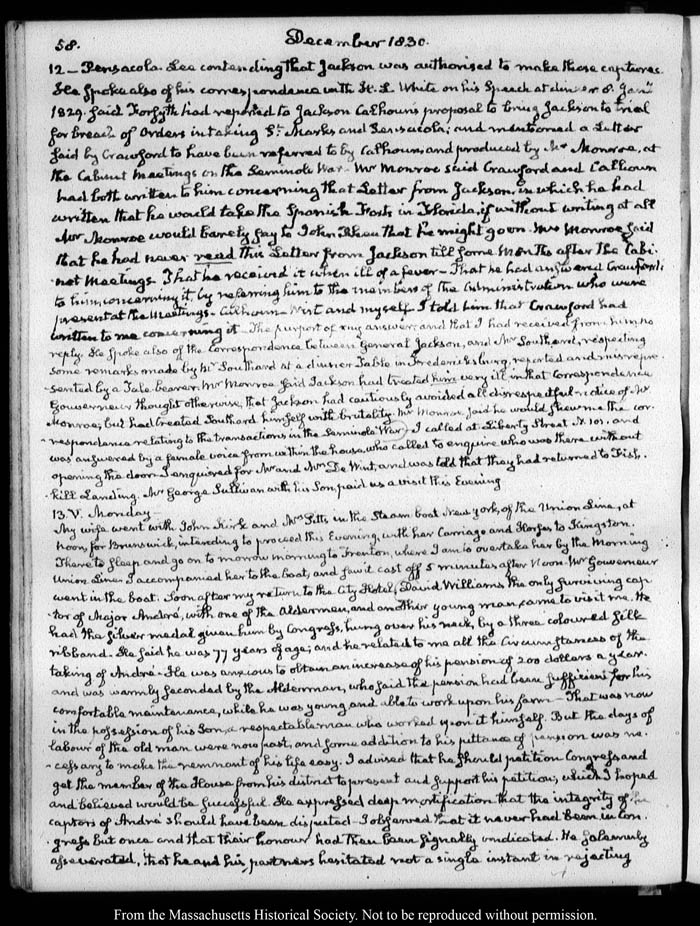 58. December 1830.
12 — Pensacola. Lee contending that Jackson was authorised to make these captures.
He spoke also of his correspondence with H. L. White on his Speech at dinner 8. Jany
1829. Said Forsyth had reported to Jackson Calhoun's proposal to bring Jackson to trial
for breach of Orders in taking St. Marks and Pensacola; and mentioned a Letter
said by Crawford to have been referred to by Calhoun, and produced by Mr Monroe, at
the Cabinet Meetings on the Seminole War. Mr Monroe said Crawford and Calhoun
had both written to him concerning that Letter from Jackson, in which he had
written that he would take the Spanish Forts in Florida, if without writing at all
Mr Monroe would barely say to John Rhea that he might go on. Mr Monroe said
that he had never read this Letter from Jackson till some months after the Cabi-
-net Meetings. That he received it when ill of a fever — That he had answered Crawford's
to him, concerning it, by referring him to the members of the Administration who were
present at the Meetings. Calhoun — Wirt and myself. I told him that Crawford had
written to me concerning it — The purport of my answer, and that I had received from him no
reply. He spoke also of the correspondence between General Jackson, and Mr Southard, respecting
some remarks made by Mr Southard at a dinner Table in Fredericksburg, reported and misrepre-
-sented by a Tale-bearer. Mr Monroe said Jackson had treated him very ill in that Correspondence
Gouverneur thought otherwise, that Jackson had cautiously avoided all disrespectful notice of Mr
Monroe, but had treated Southard himself with brutality. Mr Monroe said he would shew me the cor-
-respondence relating to the transactions in the Seminole War — I called at Liberty Street N. 101. and
was answered by a female voice from within the house, who called to enquire who was there without
opening the door. I enquired for Mr and Mrs De Wint, and was told that they had returned to Fish-
-kill Landing. Mr George Sullivan with his Son, paid us a visit this Evening
13. V. Monday —
My wife went with John Kirk and Mrs Pitts in the Steam boat New york, of the Union Line, at
noon, for Brunswick, intending to proceed this Evening, with her Carriage and Horses to Kingston.
There to sleep and go on to morrow morning to Trenton, where I am to overtake her by the Morning
Union Line. I accompanied her to the boat, and saw it cast off 5 minutes after Noon. Mr Gouverneur
went in the boat. Soon after my return to the City Hotel, David Williams the only surviving cap-
-tor of Major André, with one of the Aldermen, and another young man, came to visit me. He
had the silver medal given him by Congress, hung over his neck, by a three coloured silk
ribband. He said he was 77 years of age; and he related to me all the Circumstances of the
taking of André. He was anxious to obtain an increase of his pension of 200 dollars a year.
and was warmly seconded by the Alderman, who said the pension had been sufficient for his
comfortable maintenance, while he was young and able to work upon his farm — That was now
in the possession of his Son, a respectable man who worked upon it himself. But the days of
labour of the old man were now past, and some addition to his pittance of pension was ne-
-cessary to make the remnant of his life easy. I advised that he should petition Congress and
get the member of the House from his district to present and support his petition, which I hoped
and believed would be successful. He expressed deep mortification that the integrity of the
captors of André should have been disputed. I observed that it never had been in Con-
-gress but once and that their honour had then been signally vindicated. He solemnly
asseverated, that he and his partners hesitated not a single instant in rejecting
From the Massachusetts Historical Society. Not to be reproduced without permission.